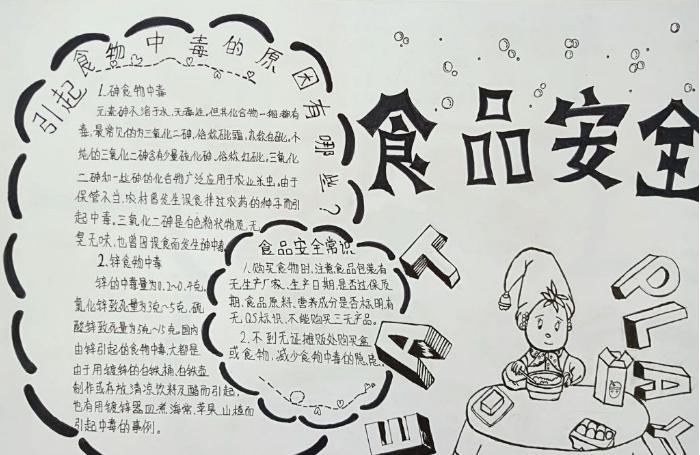 引起食物中毒的原因有哪些?
1.砷食物中毒
元素砷不溶于水,无毒性。但其化合物一般都有
毒,最常见的为三氧化二砷,俗称砒霜,亦称白砒,不
纯的三氧化二砷含有少量硫化砷,俗称红砒。三氧化
二砷和一些砷的化合物广泛应用于农业杀虫。由于
保管不当,农村曾发生误食拌过农药的种子而引
起中毒。三氧化二砷是白色粉状物质,无
臭无味,也曾因误食而发生砷中毒
2.锌食物中毒
锌的中毒量为0.2~0.4克。
氯化锌致死量为3克~5克,硫
酸锌致死量为5克~15克。国内
由锌引起的食物中毒,大都是
由于用镀锌的白铁桶,白铁壶
制作或存放清凉饮料及醋而引起,
也有用镀锌器皿煮海棠、苹果、山楂而
引起中毒的事例。
食品安全常识
1.购买食物时,注意食品包装有
无生产厂家、生产日期,是否过保质
期,食品原料、营养成分是否标明,有
无QS标识,不能购买三无产品。
2.不到无证摊贩处购买盒
或食物,减少食物中毒的隐患。
食品安全
EAT
PLAY